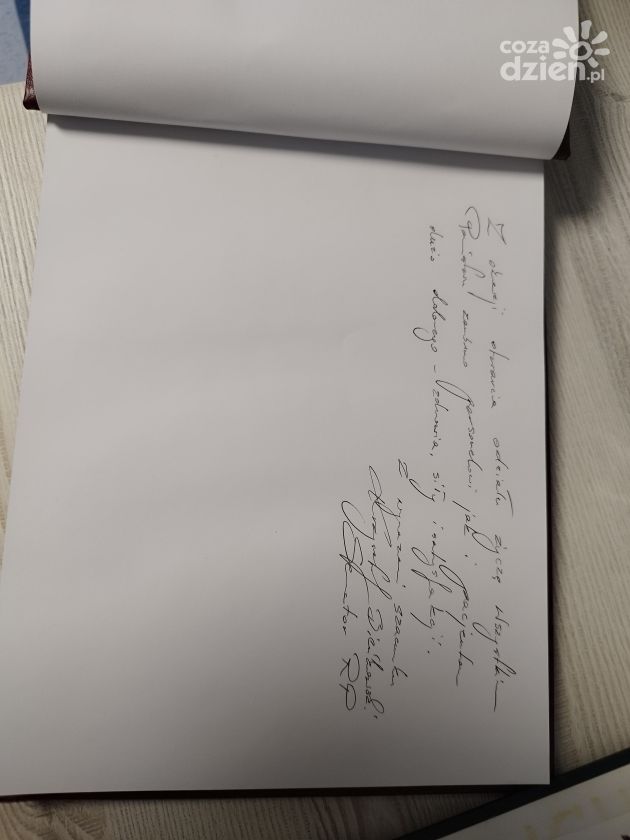 coza
dzien.pl
Z okazji otwarcia oddziału życzę wszystkim
Państwu zarówno personelowi jak i pacjentom
dużo dobrego - zdrowia, siły i satysfakcji.
Z wyrazami szacunku
Krzysztof
Senator RP